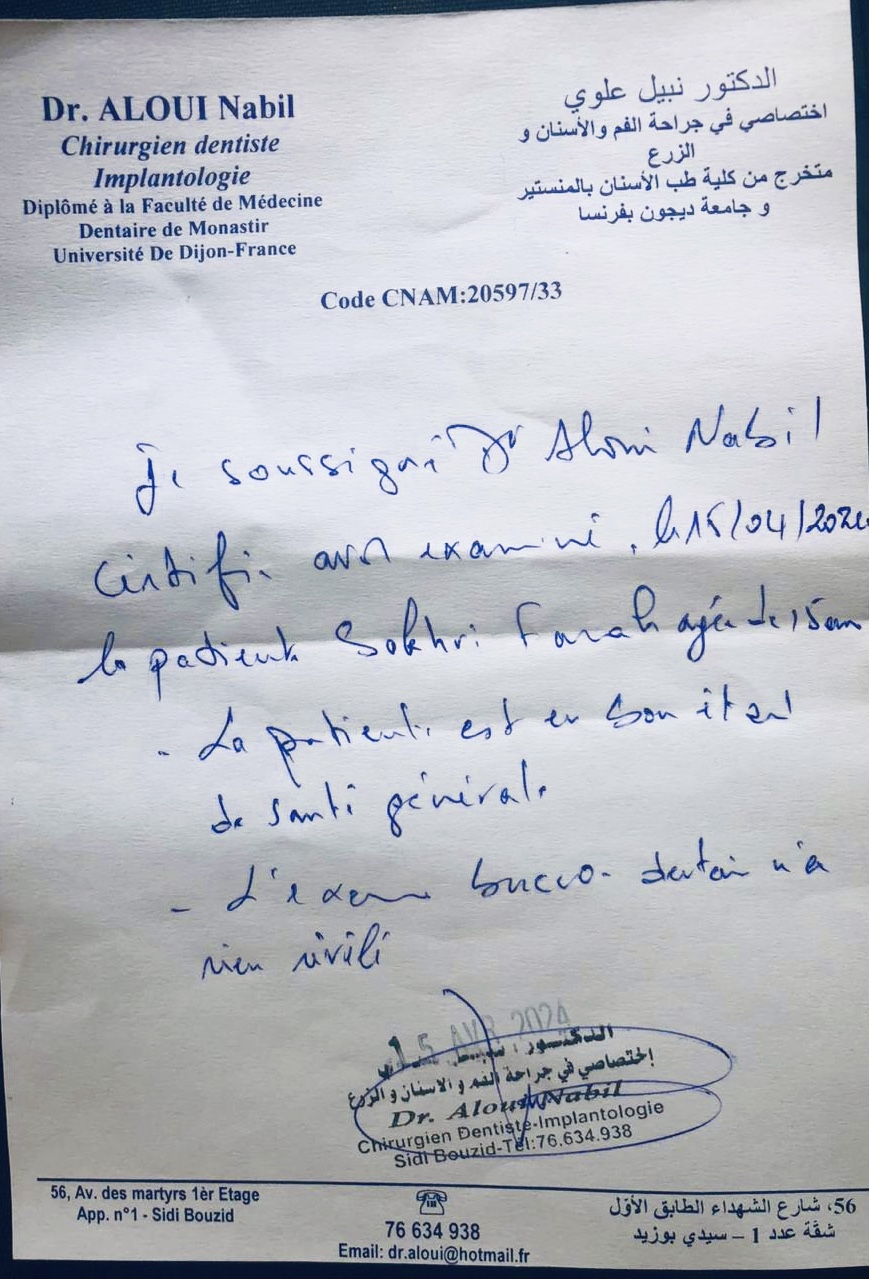 Dr. ALOUI Nabil
Chirurgien dentiste
Implantologie
Diplômé à la Faculté de Médecine
Dentaire de Monastir
Université De Dijon-France
الدكتور نبيل علوي
اختصاصي في جراحة الفم والأسنان و
الزرع
متخرج من كلية طب الأسنان بالمنستير
و جامعة ديجون بفرنسا
Code CNAM:20597/33
Je soussigné Dr Aloui Nabil
Certifie avoir examiné, le 15/04/2024
la patiente Sokhri Farah agée de 15 ans
- La patiente est en bon état
de santé générale
- L'examen bucco-dentaire n'a
rien révélé
15 AVR 2024
الدكتور
إختصاصي في جراحة الفم و الاسنان و الزرع
Dr. Aloui Nabil
Chirurgien Dentiste-Implantologie
Sidi Bouzid-Tél:76.634.938
56, Av. des martyrs 1èr Etage
App. n°1 - Sidi Bouzid
76 634 938
Email: dr.aloui@hotmail.fr
56، شارع الشهداء الطابق الأوّل
شقّة عدد 1 – سيدي بوزيد